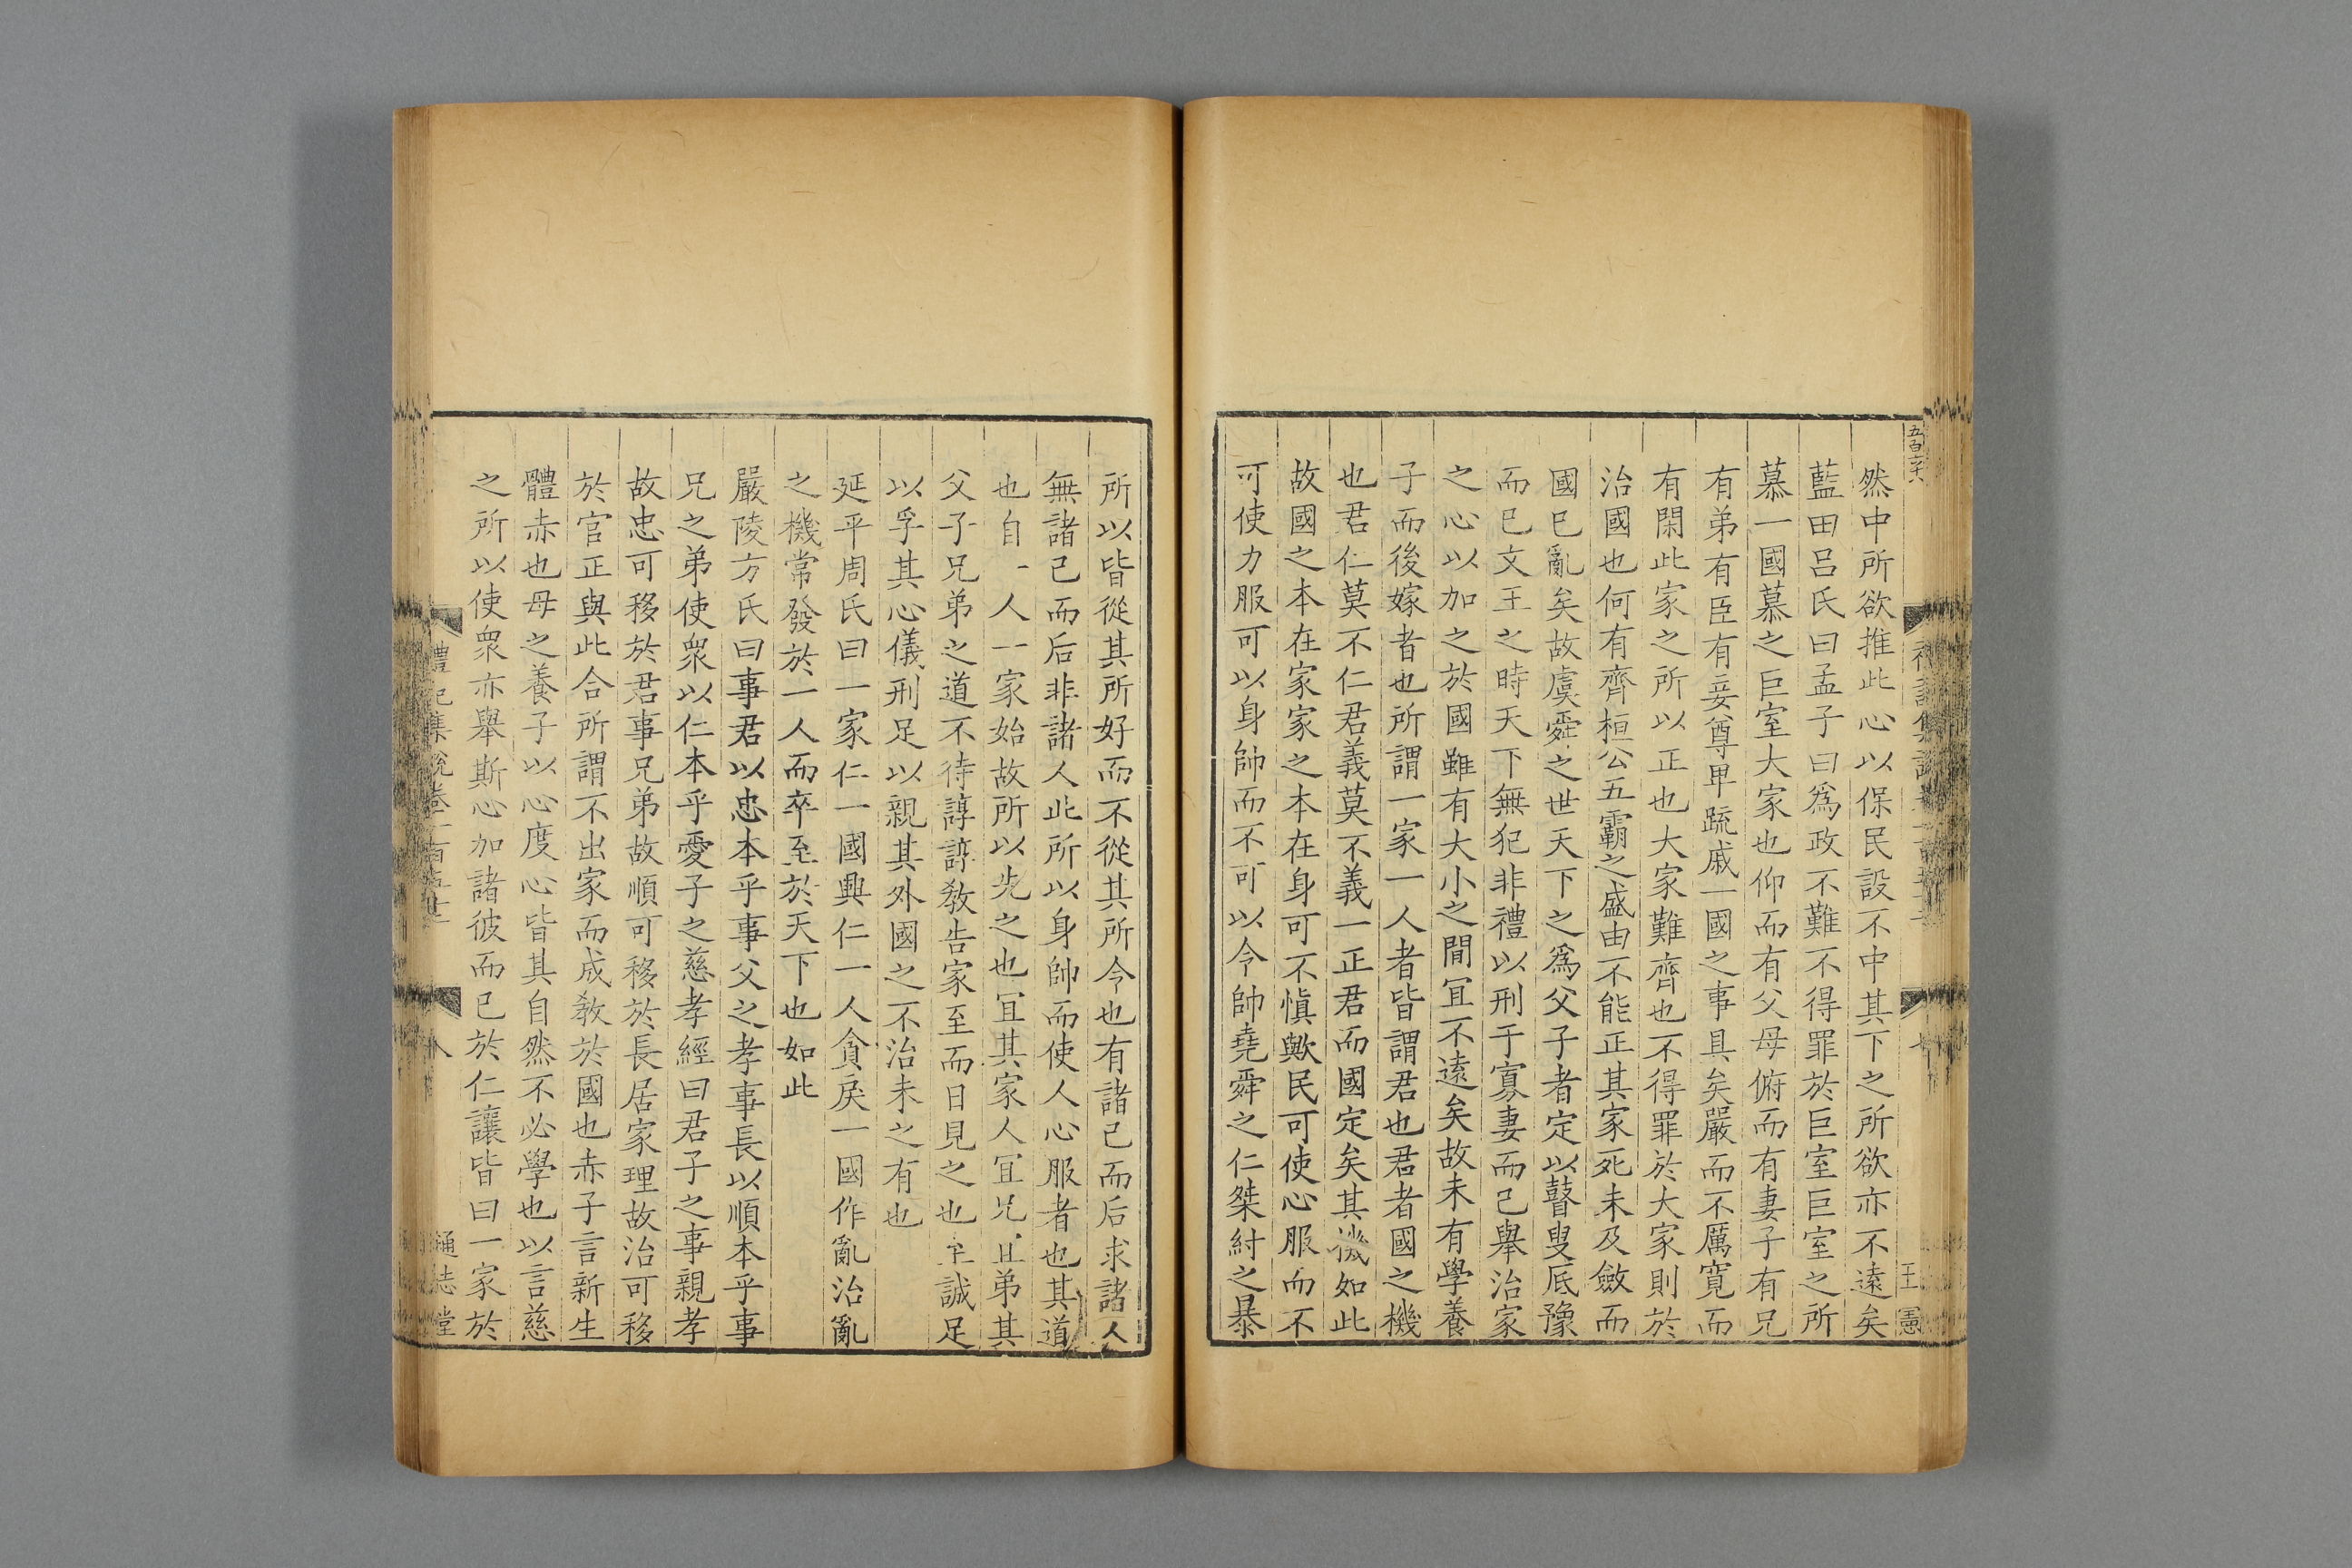 然中所欲推此心以保民設不中其下之所欲亦不遠矣
藍田呂氏曰孟子曰爲政不難不得罪於巨室巨室之所
慕一國慕之巨室大家也仰而有父母俯而有妻子有兄
有弟有臣有妾尊卑䟽戚一國之事具矣嚴而不厲寛而
有閑此家之所以正也大家難齊也不得罪於大家則於
治國也何有齊桓公五霸之盛由不能正其家死未及斂而
國已亂矣故虞舜之世天下之爲父子者定以瞽叟厎豫
而已文王之時天下無犯非禮以刑于寡妻而已舉治家
之心以加之於國雖有大小之間冝不遠矣故未有學養
子而後嫁者也所謂一家一人者皆謂君也君者國之機
也君仁莫不仁君義莫不義一正君而國定矣其機如此
故國之本在家家之本在身可不愼歟民可使心服而不
可使力服可以身帥而不可以令帥堯舜之仁桀紂之暴
王憲
所以皆從其所好而不從其所令也有諸己而后求諸人
無諸己而后非諸人此所以身帥而使人心服者也其道
也自一人一家始故所以先之也冝其家人冝兄冝弟其
父子兄弟之道不待諄諄教告家至而日見之也至誠足
以孚其心儀刑足以親其外國之不治未之有也
延平周氏曰一家仁一國興仁一人貪戾一國作亂治亂
之機常發於一人而卒至於天下也如此
嚴陵方氏曰事君以忠本乎事父之孝事長以順本乎事
兄之弟使衆以仁本乎愛子之慈孝經曰君子之事親孝
故忠可移於君事兄弟故順可移於長居家理故治可移
於官正與此合所謂不出家而成教於國也赤子言新生
體赤也母之養子以心度心皆其自然不必學也以言慈
之所以使衆亦舉斯心加諸彼而已於仁讓皆曰一家於
禮記集說卷一百五十
八
通志堂